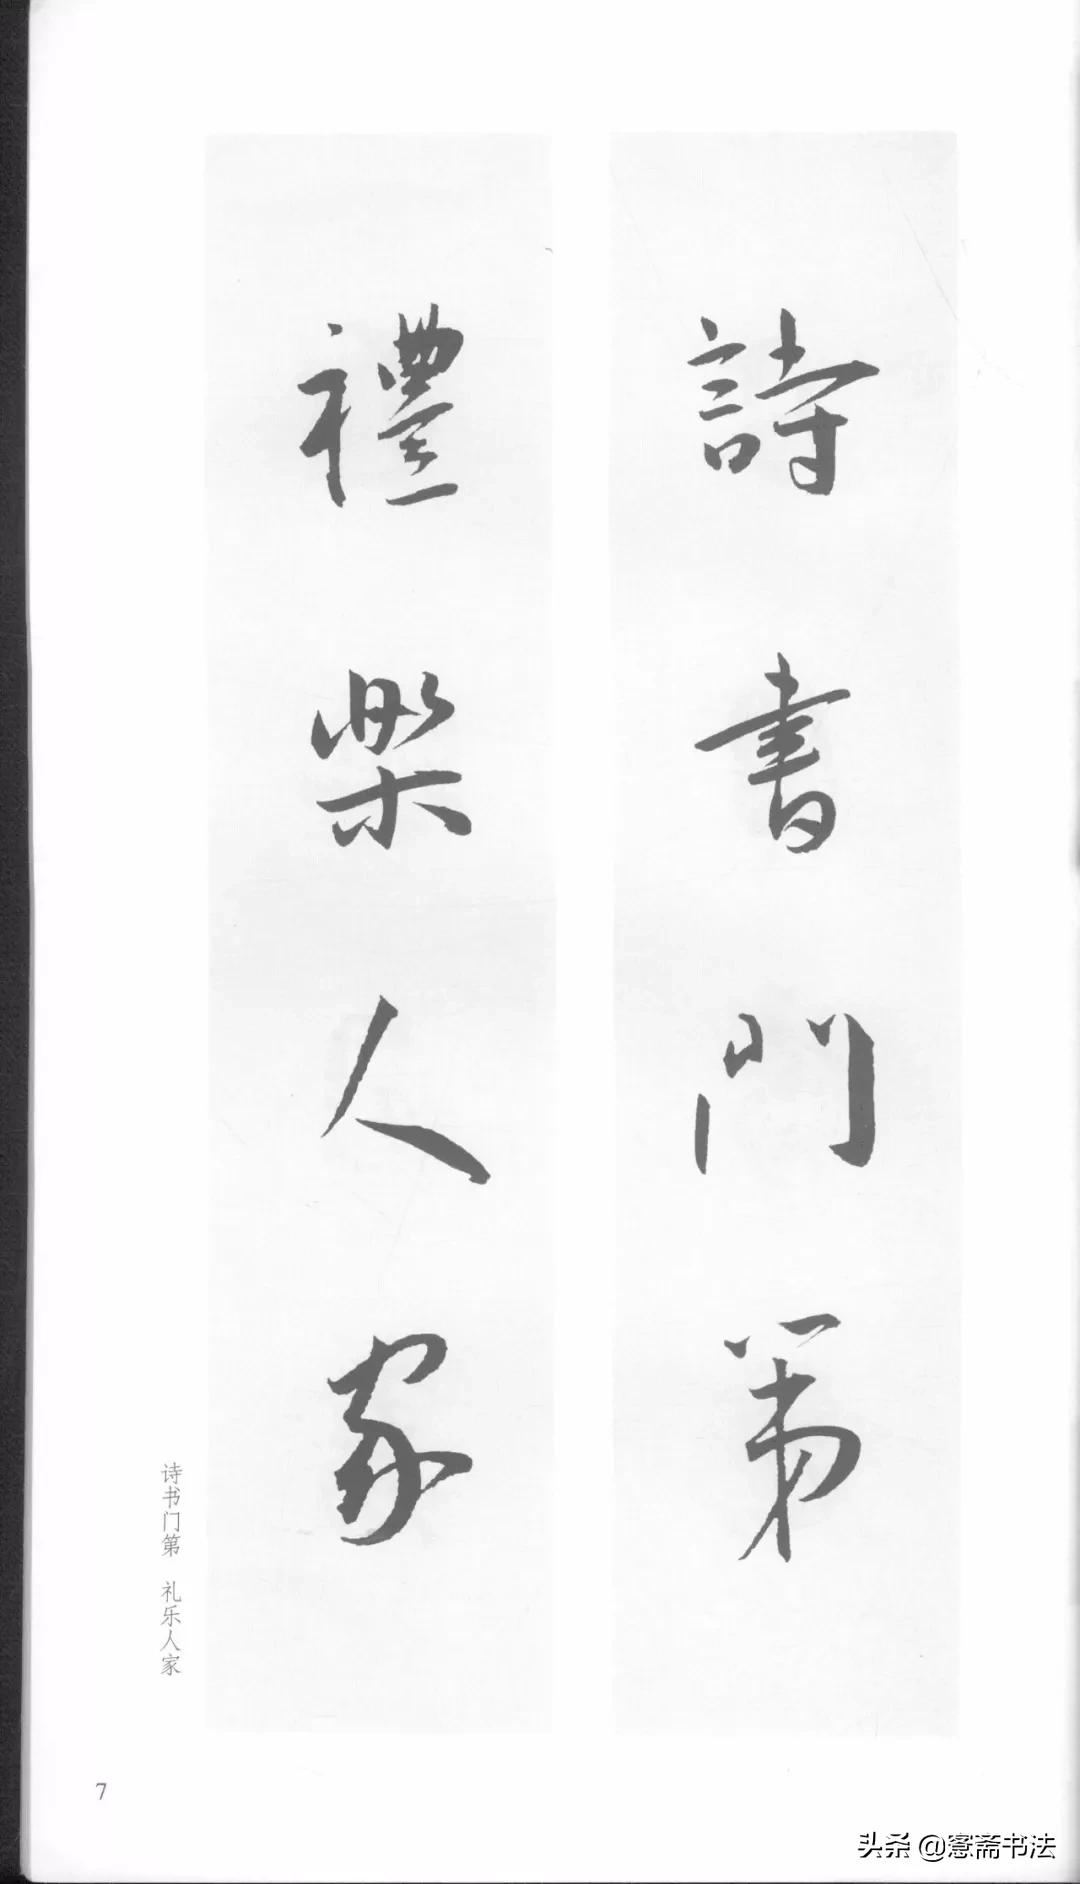 詩書門第
禮樂人家
诗书门第 礼乐人家
7
头条 @愙斋书法